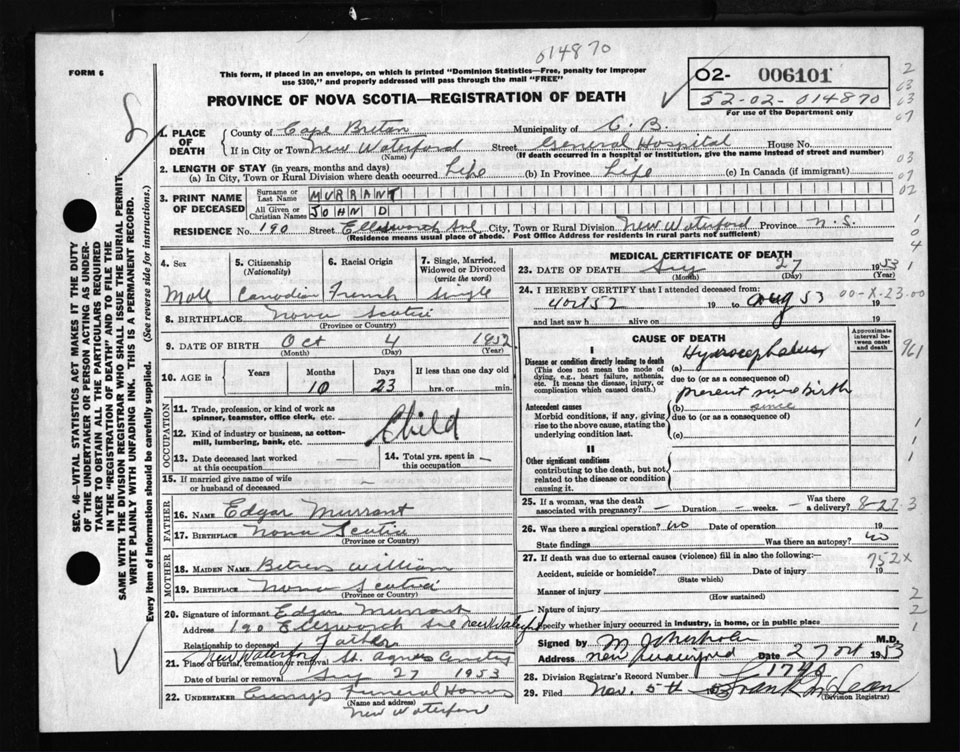 014870
FORM 6
This form, if placed in an envelope, on which is printed "Dominion Statistics—Free, penalty for improper
use $300," and properly addressed will pass through the mail "FREE"
PROVINCE OF NOVA SCOTIA—REGISTRATION OF DEATH
O2- 006101
52-02-014870
For use of the Department only
1. PLACE OF DEATH
County of Cape Breton Municipality of C. B.
If in City or Town New Waterford Street General Hospital House No.
(Name) (If death occurred in a hospital or institution, give the name instead of street and number)
2. LENGTH OF STAY (in years, months and days)
(a) In City, Town or Rural Division where death occurred Life (b) In Province Life (c) In Canada (if immigrant)
3. PRINT NAME OF DECEASED
Surname or Last Name MURRANT
All Given or Christian Names JOHN D
RESIDENCE No. 190 Street Ellesworth Ave City, Town or Rural Division New Waterford Province N.S.
(Residence means usual place of abode. Post Office Address for residents in rural parts not sufficient)
4. Sex
5. Citizenship (Nationality)
6. Racial Origin
7. Single, Married, Widowed or Divorced (write the word)
Male Canadian French Single
8. BIRTHPLACE Nova Scotia
(Province or Country)
9. DATE OF BIRTH Oct 4 1952
(Month) (Day) (Year)
10. AGE in Years Months Days If less than one day old
10 23 hrs. or min.
OCCUPATION
11. Trade, profession, or kind of work as spinner, teamster, office clerk, etc.
12. Kind of industry or business, as cotton-mill, lumbering, bank, etc.
Child
13. Date deceased last worked at this occupation
14. Total yrs. spent in this occupation
15. If married give name of wife or husband of deceased
FATHER
16. NAME Edgar Murrant
17. BIRTHPLACE Nova Scotia
(Province or Country)
MOTHER
18. MAIDEN NAME William
19. BIRTHPLACE Nova Scotia
(Province or Country)
20. Signature of informant Edgar Murrant
Address 190 Ellesworth Ave New Waterford
Relationship to deceased Father
New Waterford
21. Place of burial, cremation or removal St. Agnes Cemetery
Date of burial or removal 27 1953
22. UNDERTAKER Funeral Homes
(Name and address)
New Waterford
MEDICAL CERTIFICATE OF DEATH
23. DATE OF DEATH 27 1953
(Month) (Day) (Year)
24. I HEREBY CERTIFY that I attended deceased from:
Oct 52 19 to Aug 53
00-X-23.00
and last saw h alive on 19
CAUSE OF DEATH
Approximate interval between onset and death
I
Disease or condition directly leading to death
(This does not mean the mode of dying, e.g., heart failure, asthenia, etc. It means the disease, injury, or complication which caused death.)
(a) Hydrocephalus
due to (or as a consequence of)
present since birth
Antecedent causes
Morbid conditions, if any, giving rise to the above cause, stating the underlying condition last.
(b) since
due to (or as a consequence of)
(c)
II
Other significant conditions
contributing to the death, but not related to the disease or condition causing it.
25. If a woman, was the death associated with pregnancy? Duration weeks. Was there a delivery? 8-27
26. Was there a surgical operation? no Date of operation 19
State findings Was there an autopsy? no
27. If death was due to external causes (violence) fill in also the following:—
752X
Accident, suicide or homicide? Date of injury 19
(State which)
Manner of injury
(How sustained)
Nature of injury
Specify whether injury occurred in industry, in home, or in public place
Signed by M.D.
Address New Waterford Date 27 Oct 1953
28. Division Registrar's Record Number 1740
29. Filed Nov. 5th 53 Frank McLean
(Division Registrar)
SEC. 46—VITAL STATISTICS ACT MAKES IT THE DUTY
OF THE UNDERTAKER OR PERSON ACTING AS UNDER-
TAKER TO OBTAIN ALL THE PARTICULARS REQUIRED
IN THE "REGISTRATION OF DEATH" AND TO FILE THE
SAME WITH THE DIVISION REGISTRAR WHO SHALL ISSUE THE BURIAL PERMIT
WRITE PLAINLY WITH UNFADING INK. THIS IS A PERMANENT RECORD.
Every item of information should be carefully supplied. (See reverse side for instructions.)